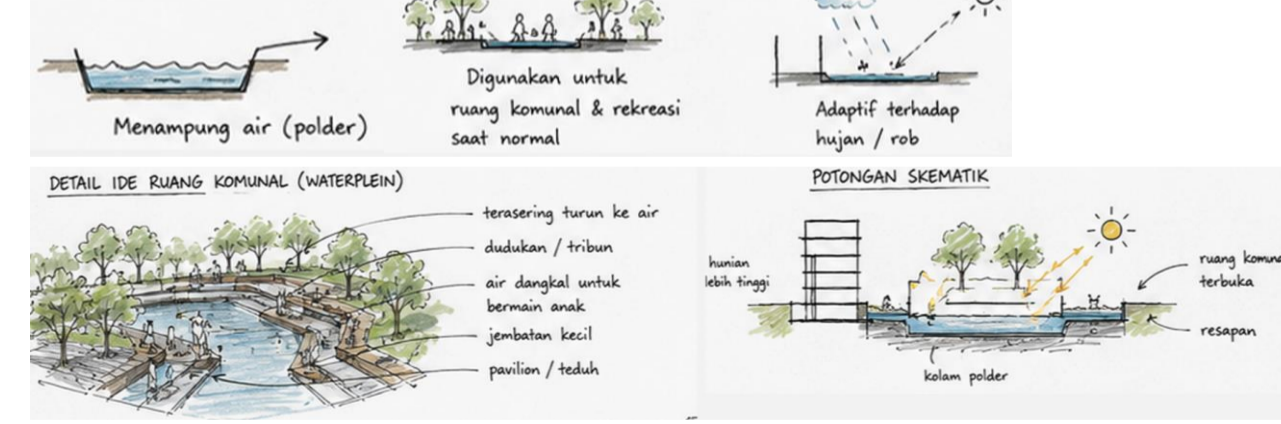 Menampung air (polder)
Digunakan untuk
ruang komunal & rekreasi
saat normal
Adaptif terhadap
hujan / rob
DETAIL IDE RUANG KOMUNAL (WATERPLEIN)
terasering turun ke air
dudukan / tribun
air dangkal untuk
bermain anak
jembatan kecil
pavilion / teduh
POTONGAN SKEMATIK
hunian
lebih tinggi
ruang
terbuka
resapan
kolam polder